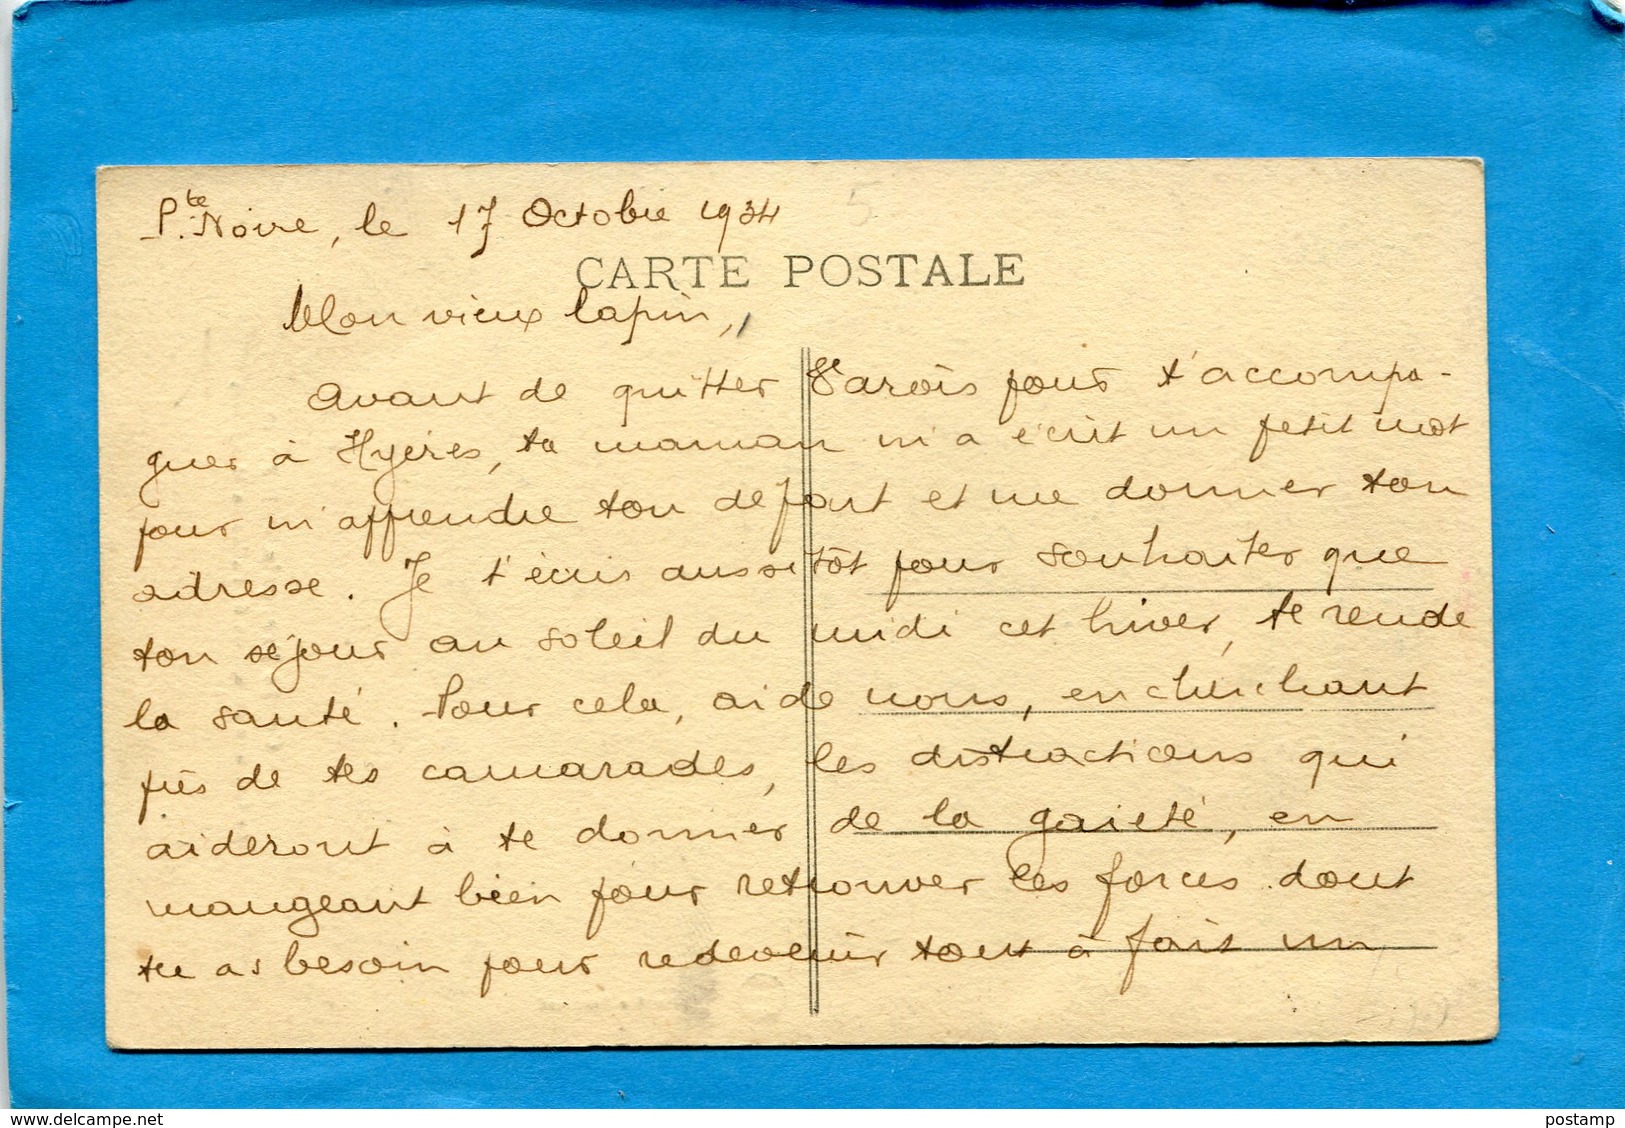 Pte. Noire, le 17 Octobre 1934
CARTE POSTALE
Mon vieux lapin,
Avant de quitter pour t'accompa-
gner à Hyères, ta maman m'a écrit un petit mot
pour m'apprendre ton départ et me donner ton
adresse. Je t'écris aussitôt pour souhaiter que
ton séjour au soleil du midi cet hiver, te rende
la santé. Pour cela, aide nous, en cherchant
près de tes camarades, les distractions qui
aideront à te donner de la gaieté, en
mangeant bien pour retrouver les forces dont
tu as besoin pour redevenir tout à fait un
http://www.delcampe.net
postamp